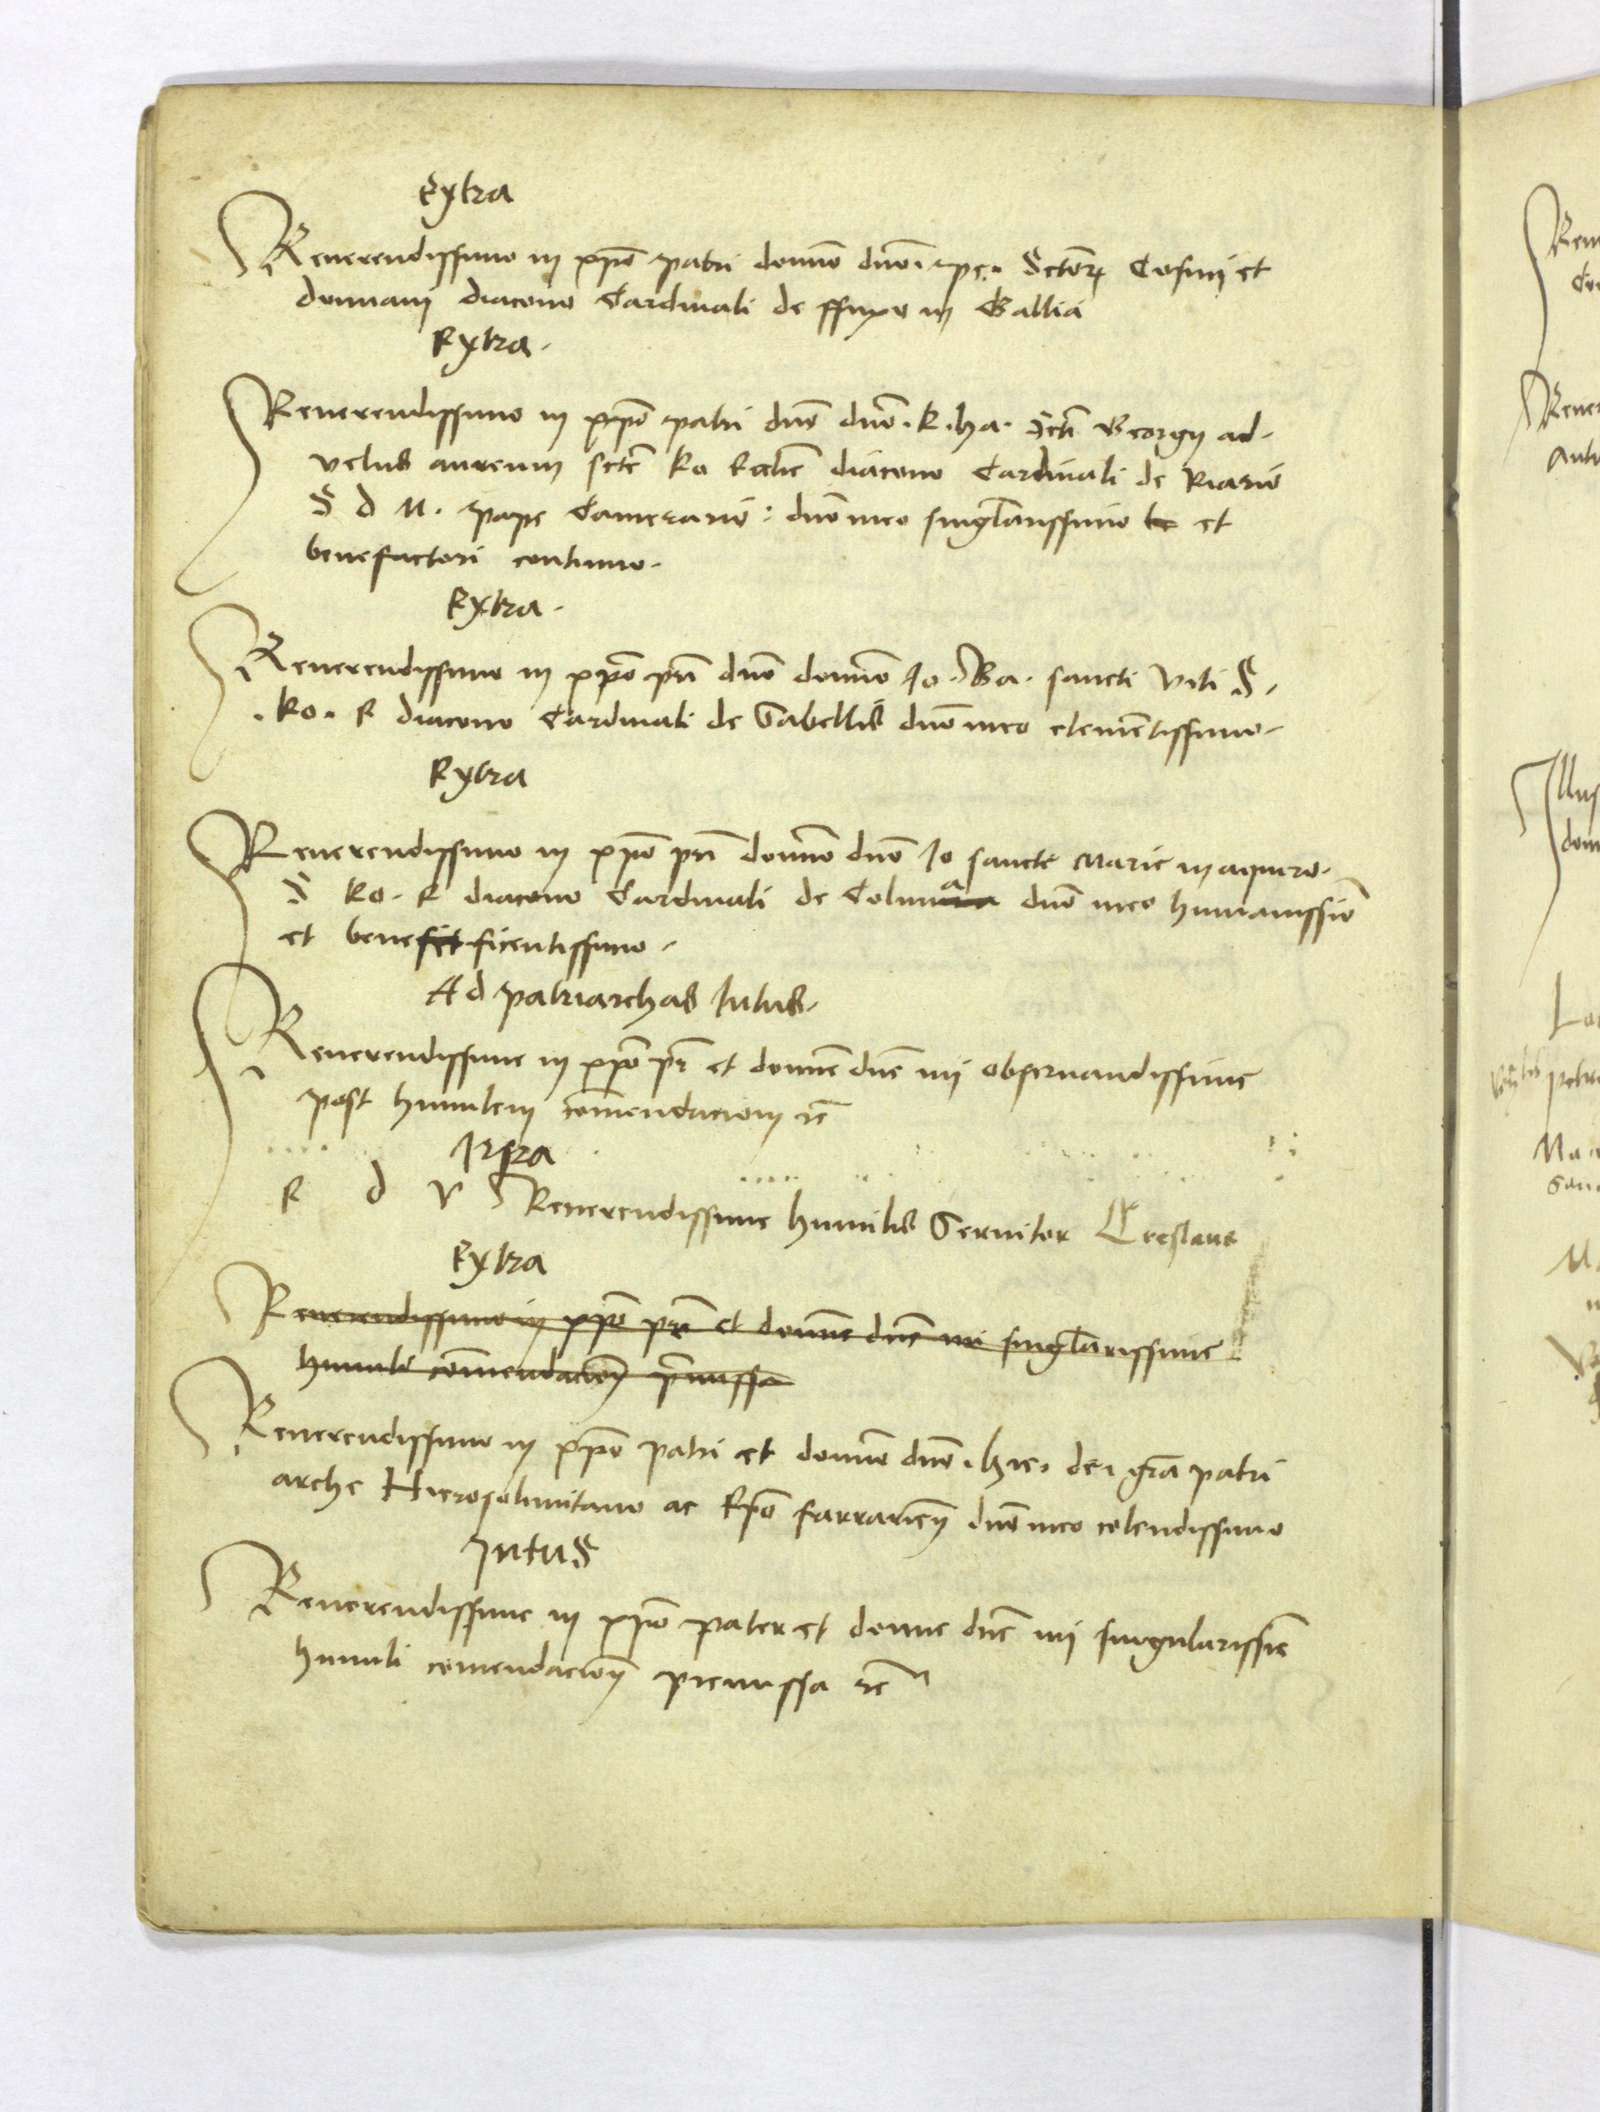 Extra
Reverendissimo in xpō patri domīo dūo .pe. Sctōrꝝ Cosmij et
domiani diacono Cardinali de ffuxo in Gallia
Extra.
Reverendissimo in xpō patri dūo dūo .R.ha. Scti Georgij ad.
velus aureum scte Ro Ecclīe diacono Cardinali de Riario
S d N. pape Camerario: dūo meo singlarissimo be et
benefactori continuo.
Extra.
Reverendissimo in xpō pri dūo domīo Jo. Ba. sancti Viti S.
.Ro. E diacono Cardinali de Sabellis dūo meo clemētissimo.
Extra
Reverendissimo in xpō pri domīo dūo Jo sancte Marie in aquiro.
S Ro. E diacono Cardinali de Columna dūo meo humanissio
et benefit ficentissimo.
Ad patriarchas Intus.
Reverendissime in xpō pr et domīe dūe mi observandissime
post humilem comendacionem rc
Infra
R d V Reverendissime humilis Servitor Creslaus
Extra
Reverendissimo in xpō pr et domīe dūe mi singlarissime
humili comendacione pmissa
Reverendissimo in xpō patri et domīo dūo .hie. dei gra patri
arche Hierosolimitano ac Epō farrarien dūo meo colendissimo
Intus
Reverendissime in xpō pater et domīe dūe mi singularissie
humili comendacione premissa rc